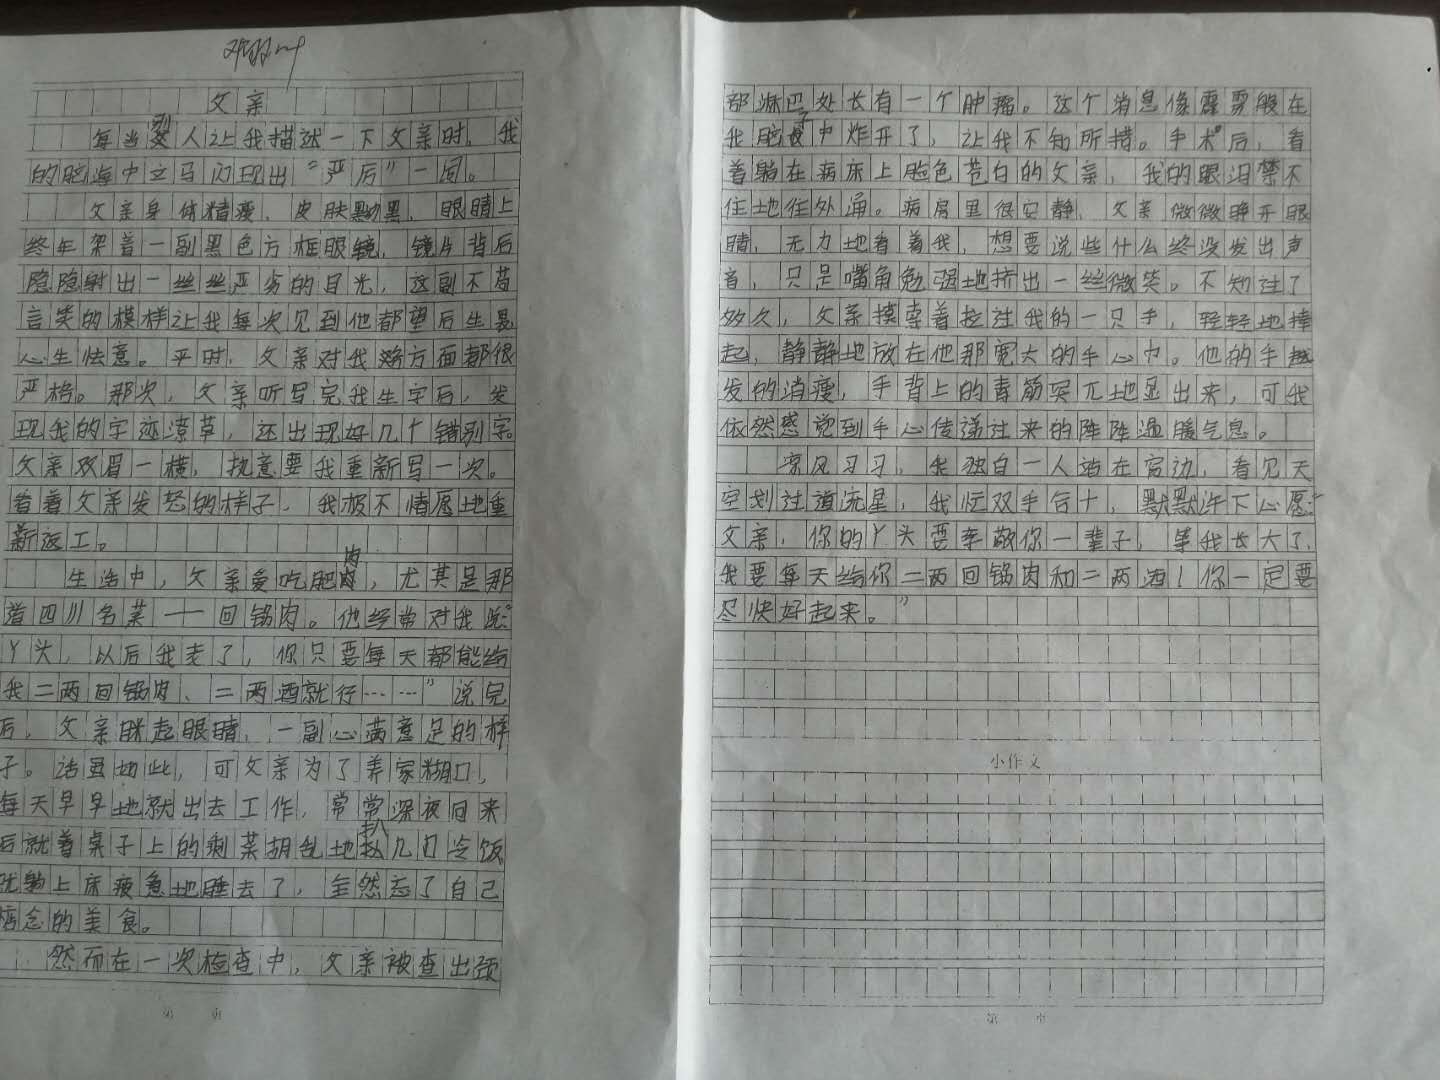 父亲
每当别人让我描述一下父亲时，我
的脑海中立马闪现出“严厉”一词。
父亲身体精瘦，皮肤黝黑，眼睛上
终年架着一副黑色方框眼镜，镜片背后
隐隐射出一丝丝严厉的目光，这副不苟
言笑的模样让我每次见到他都望后生畏
心生怯意。平时，父亲对我各方面都很
严格。那次，父亲听写完我生字后，发
现我的字迹潦草，还出现好几个错别字。
父亲双眉一横，执意要我重新写一次。
看着父亲发怒的样子，我极不情愿地重
新返工。
生活中，父亲爱吃肥肉，尤其是那
道四川名菜——回锅肉。他经常对我说：“
丫头，以后我老了，你只要每天都能给
我二两回锅肉、二两酒就行……”说完
后，父亲眯起眼睛，一副心满意足的样
子。话虽如此，可父亲为了养家糊口，
每天早早地就出去工作，常常深夜回来
后就着桌子上的剩菜胡乱地扒几口冷饭
就躺上床疲惫地睡去了，全然忘了自己
惦念的美食。
然而在一次检查中，父亲被查出颈
部淋巴处长有一个肿瘤。这个消息像霹雳般在
我脑子中炸开了，让我不知所措。手术后，看
着躺在病床上脸色苍白的父亲，我的眼泪禁不
住地往外涌。病房里很安静，父亲微微睁开眼
睛，无力地看着我，想要说些什么终没发出声
音，只是嘴角勉强地挤出一丝微笑。不知过了
多久，父亲摸索着拉过我的一只手，轻轻地捧
起，静静地放在他那宽大的手心中。他的手越
发的消瘦，手背上的青筋突兀地显出来，可我
依然感觉到手心传递过来的阵阵温暖气息。
凉风习习，我独自一人站在窗边，看见天
空划过道流星，我忙双手合十，默默许下心愿：“
父亲，你的丫头要孝敬你一辈子，等我长大了，
我要每天给你二两回锅肉和二两酒！你一定要
尽快好起来。”
小作文
第 页
第 页